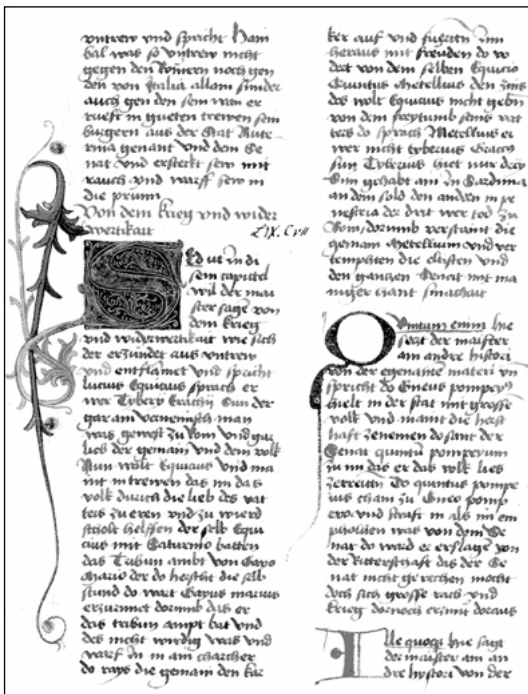 vntrew vnd spricht Hani
bal was so vntrew nicht
gegen den Römern noch gen
den von Italia allain sunder
auch gen den sein wan er
rueft in gueten trewen sein
burgern aus der stat Nute
rina genant vnd dem Se
nat vnd ersteckt sew mit
rauch vnd warff sew in
die prunn
Von dem krieg vnd wider
wertikait
L IX. C VII
Ed vt in di
sem capittel
wil der mai
ster sagen von
dem krieg
vnd widerwertikait wie sich
der erzündet aus vntrew
vnd entflamet vnd spricht
lucius Equicius sprach er
wer Tybery Gracchy Sun der
gar ain vernemisch man
was gewest zu Rom vnd gar
lieb der gemain vnd dem volk
Nun wolt Equicius vnd ma
int in trewen das im das
volk durich die lieb des vat
ters zu eren vnd zu wierd
scholt helffen der selb Equi
cius mit Saturnio batten
das Tribun ambt von Gayo
Mario der do herscht die selb
stund do wart Gayus marius
erzurnnet dorumb das er
das tribun ampt bat vnd
des nicht wirdig was vnd
warf in in ain charcher
do rays die gemain den kar
ker auf vnd fuerten inn
heraus mit freuden do vo
dert von dem selben Equicio
Quintus Metellus den zins
des wolt Equicius nicht gebn
von dem freytumb seins vat
ters do sprach Metellus er
wer nicht tyberius Gracchy
sun Tyberius hiet nur drey
Sun gehabt ain in Sardinia
an dem sold den andern in pe
nestria der drit wer tod zu
Rom dorumb verstaint die
gemain Metellium vnd ver
tempften die elisten vnd
den ganczen Seneit mit ma
niger hant smachait
Quintum enim hie
seczt der maister
ain andre histori
von der egenante materi vn
spricht do Gneus pompeyus
hielt in der stat mit grosse
volk vnd mant die herst
haft zenemen do sant der
Senat quintum pomperum
zu im das er das volk lies
zetreiten Do quintus pompe
ius cham zu Gneo pomp
eyo vnd straft in als im em
pholhen was von dem Se
nat do ward er erslagen von
der Ritterschaft das der Se
nat nicht gerechen mocht
doch sich grosse rach vnd
krieg dornoch erzünt doraus
Ille quoque hie sagt
der maister ain an
dre hystori von der